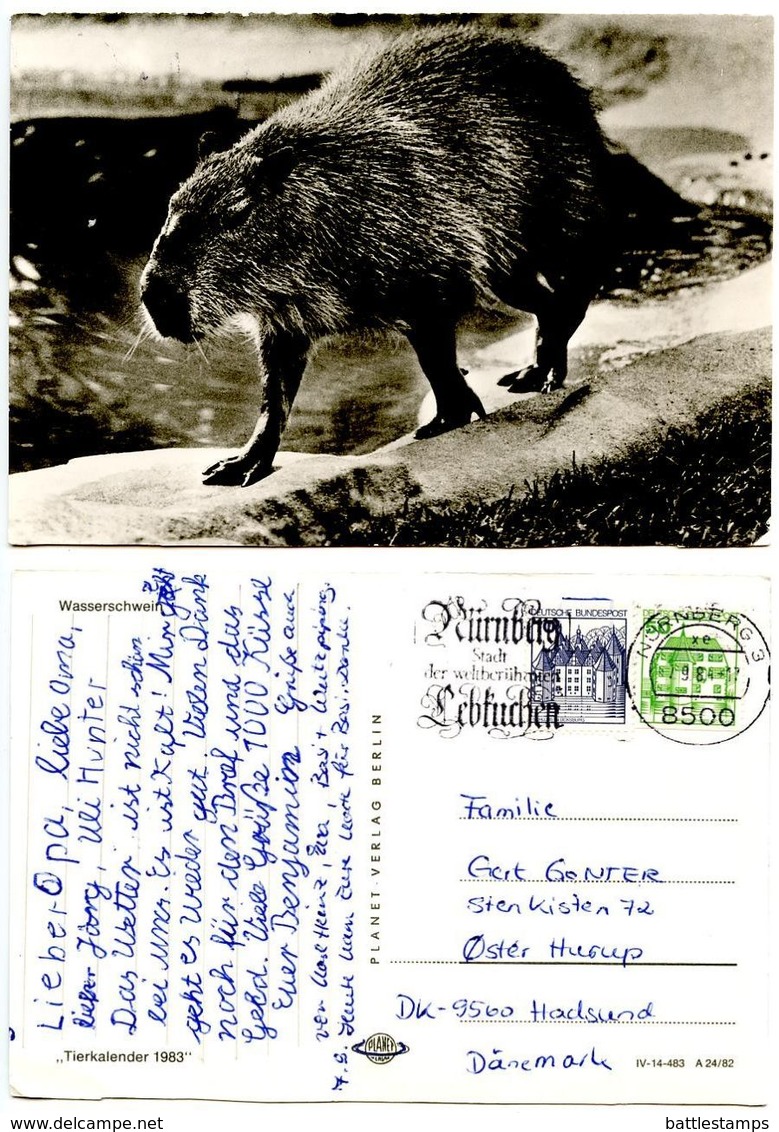 Wasserschwein
Lieber Opa, liebe Oma,
lieber Jörg, Uli Hunter
Das Wetter ist nicht schön
bei uns. Es ist kalt! Mir
geht es wieder gut. Vielen Dank
noch für den Brief und das
Geld. Viele Grüße 1000 Küsse
Euer Benjamin Grüße auch
von Karl Heinz,
Heute kam Eure Karte für Basi. Danke.
„Tierkalender 1983"
PLANET-VERLAG BERLIN
PLANET
VERLAG
Nürnberg
Stadt
der weltberühmten
Lebkuchen
DEUTSCHE BUNDESPOST
50
NÜRNBERG 3
xe
8500
Familie
Gert GONTER
Sten Kisten 72
Øster Hurup
DK-9560 Hadsund
Dänemark
IV-14-483 A 24/82
www.delcampe.net
battlestamps